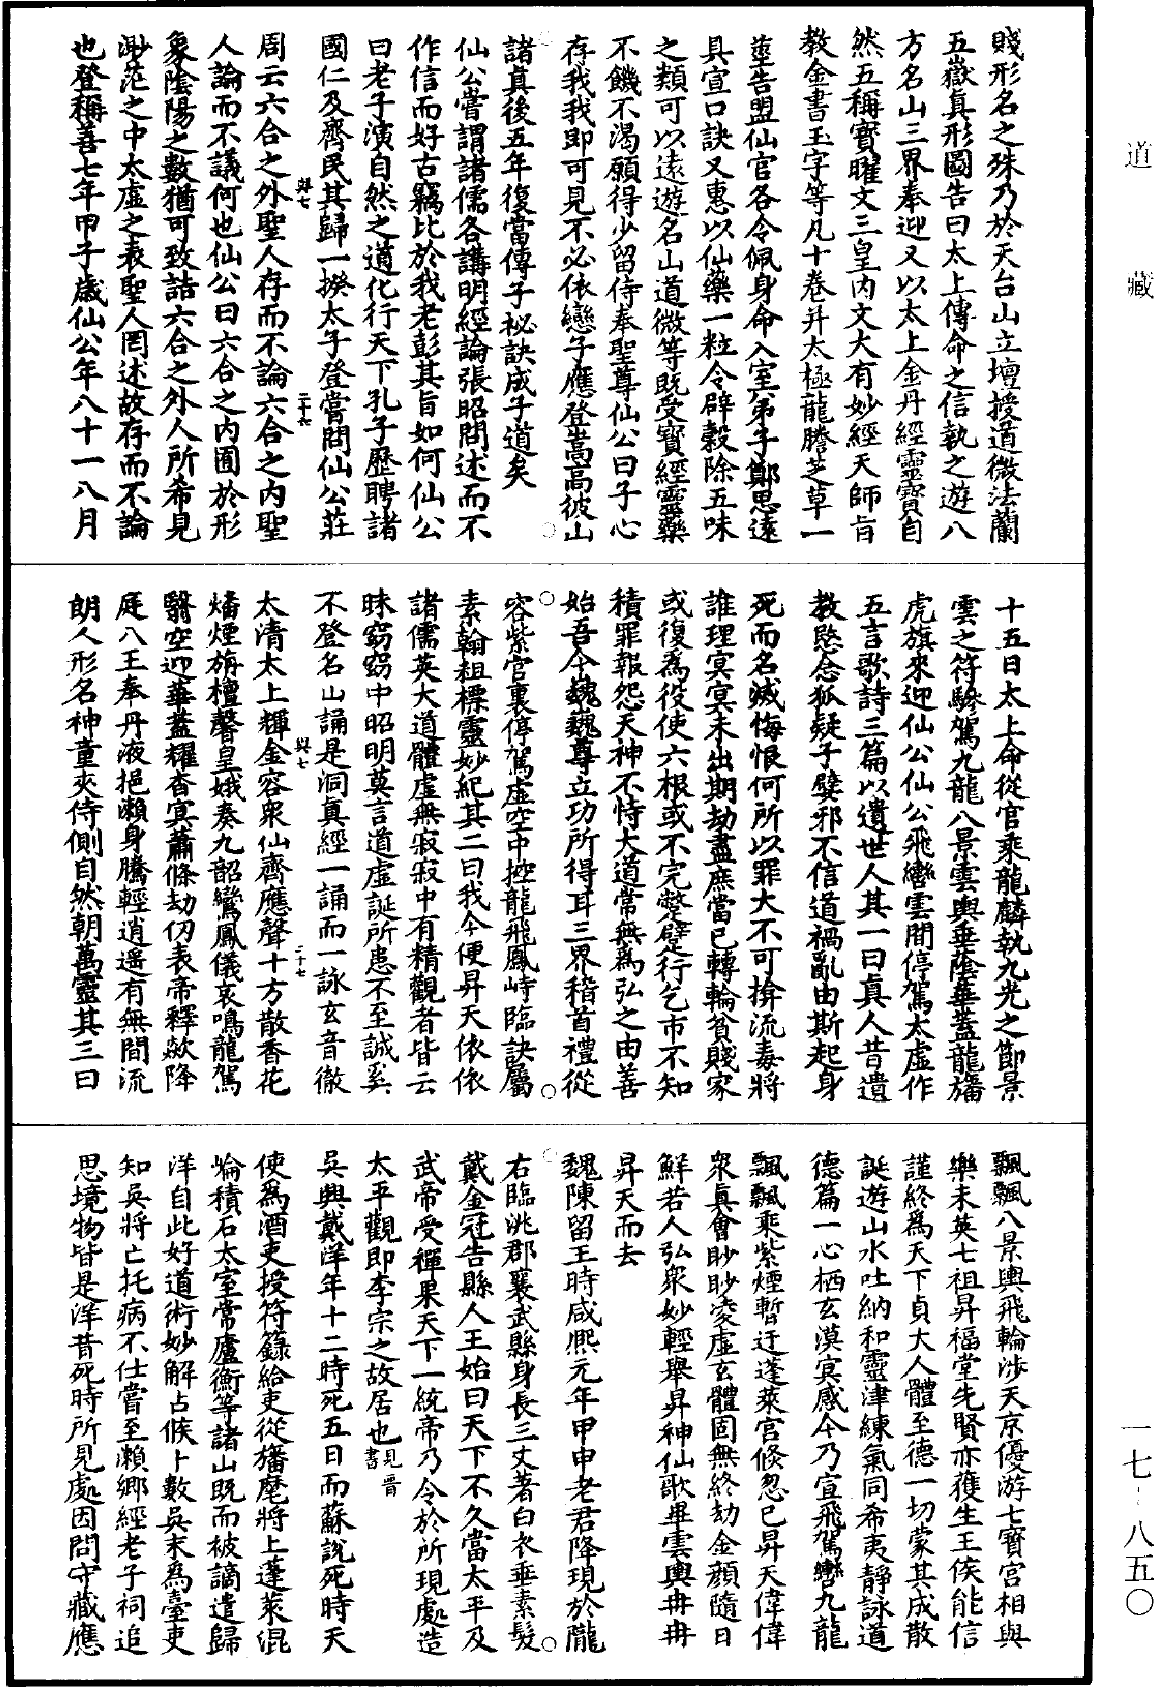 道藏
賤形名之殊乃於天台山立壇授道微法蘭
五嶽眞形圖告曰太上傳命之信執之遊八
方名山三界奉迎又以太上金丹經靈寶自
然五稱寶曜文三皇內文大有妙經天師旨
教金書玉字等凡十卷并太極龍騰芝草一
莖告盟仙官各令佩身命入室弟子鄭思遠
具宣口訣又惠以仙藥一粒令辟穀除五味
之類可以遠遊名山道微等既受寶經靈藥
不饑不渴願得少留侍奉聖尊仙公曰子心
存我我即可見不必依戀子應登嵩高彼山
諸眞後五年復當傳子祕訣成子道矣
仙公嘗謂諸儒各講明經論張昭問述而不
作信而好古竊比於我老彭其旨如何仙公
曰老子演自然之道化行天下孔子歷聘諸
國仁及齊民其歸一揆太子登嘗問仙公莊
周云六合之外聖人存而不論六合之內聖
人論而不議何也仙公曰六合之內囿於形
象陰陽之數猶可致詰六合之外人所希見
渺茫之中太虛之表聖人罔述故存而不論
也登稱善七年甲子歲仙公年八十一八月
十五日太上命從官乘龍麟執九光之節景
雲之符驂駕九龍八景雲輿垂蔭華蓋龍旛
虎旗來迎仙公仙公飛轡雲間停駕太虛作
五言歌詩三篇以遺世人其一曰眞人昔遺
教愍念狐疑子嬖邪不信道禍亂由斯起身
死而名滅悔恨何所以罪大不可揜流毒將
誰理冥冥未出期劫盡庶當已轉輪貧賤家
或復爲役使六根或不完躄躄行乞市不知
積罪報怨天神不恃大道常無爲弘之由善
始吾今巍巍尊立功所得耳三界稽首禮從
容紫宮裏停駕虛空中控龍飛鳳峙臨訣屬
素翰粗標靈妙紀其二曰我今便昇天依依
諸儒英大道體虛無寂寂中有精觀者皆云
昧窈窈中昭明莫言道虛誕所患不至誠奚
不登名山誦是洞眞經一誦而一詠玄音徹
太清太上輝金容衆仙齊應聲十方散香花
燔煙旃檀馨皇娥奏九韶鸞鳳儀哀鳴龍駕
翳空迎華蓋耀杳冥蕭條劫仞表帝釋歘降
庭八王奉丹液挹漱身騰輕逍遙有無間流
朗人形名神童夾侍側自然朝萬靈其三曰
飄飄八景輿飛輪涉天京優游七寶宮相與
樂未英七祖昇福堂先賢亦獲生王侯能信
謹終爲天下貞大人體至德一切蒙其成散
誕遊山水吐納和靈津練氣同希夷靜詠道
德篇一心栖玄漠冥感今乃宣飛駕轡九龍
飄飄乘紫煙暫迂蓬萊宮倏忽已昇天偉偉
衆眞會眇眇凌虛玄體固無終劫金顏隨日
鮮若人弘衆妙輕舉昇神仙歌畢雲輿冉冉
昇天而去
魏陳留王時咸熙元年甲申老君降現於隴
右臨洮郡襄武縣身長三丈著白衣垂素髮
戴金冠告縣人王始曰天下不久當太平及
武帝受禪果天下一統帝乃令於所現處造
太平觀即李宗之故居也見晉書
吳興戴洋年十二時死五日而蘇說死時天
使爲酒吏授符籙給吏從旛麾將上蓬萊混
崘積石太室常廬衡等諸山既而被謫遣歸
洋自此好道術妙解占候卜數吳末爲臺吏
知吳將亡托病不仕嘗至瀨鄉經老子祠追
思境物皆是洋昔死時所見處因問守藏應
一七-八五〇